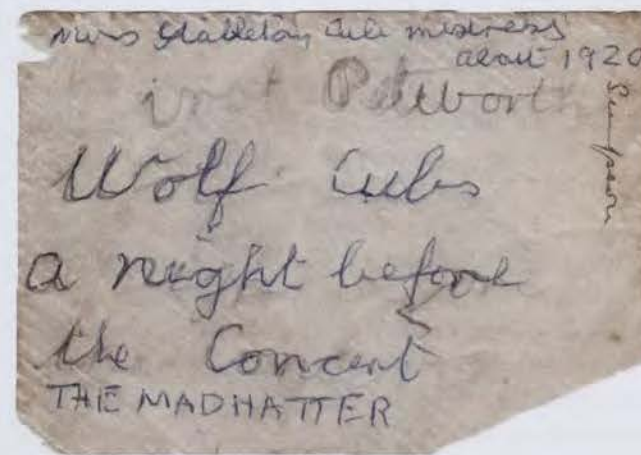 Mrs Stapleton, Cub mistress
about 1920
1st Petworth
Wolf Cubs
a night before
the Concert
THE MADHATTER
Simpson